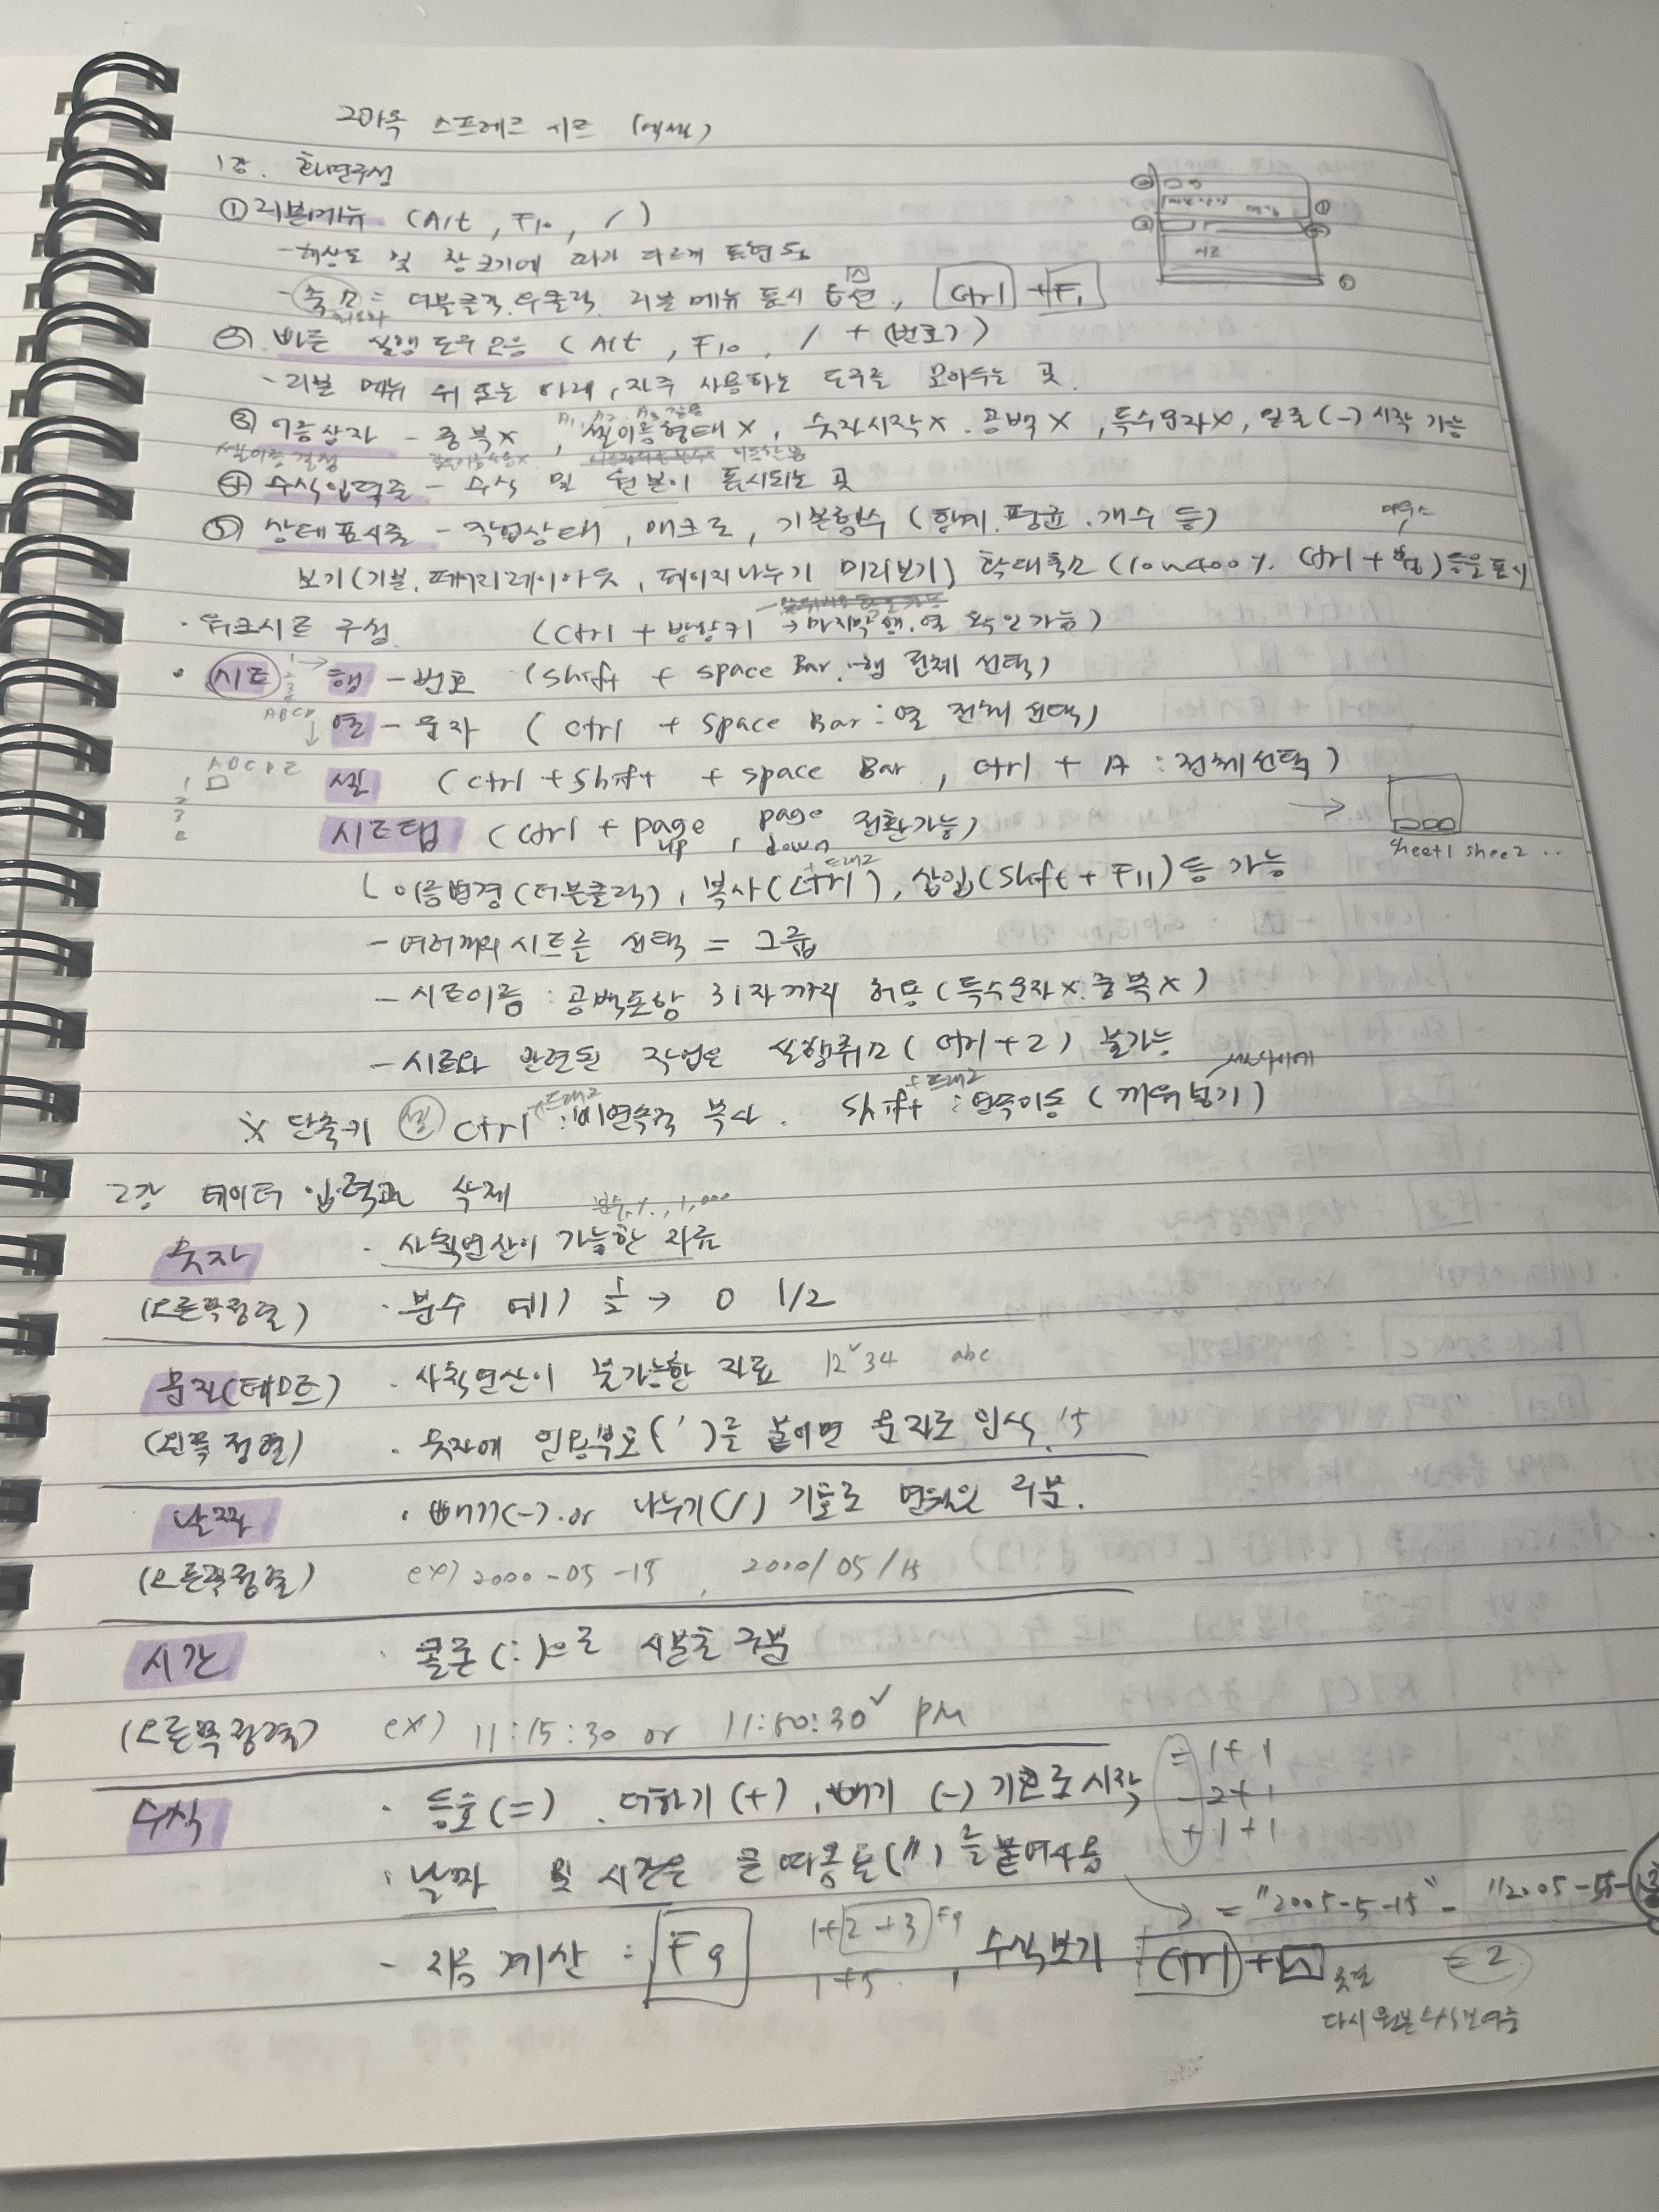 2과목 스프레드 시트 (엑셀)
1강. 화면구성
① 리본메뉴 (Alt, F10, /)
- 해상도 및 창 크기에 따라 다르게 표현됨
- 축소 = 더블클릭, 우클릭, 리본 메뉴 표시 옵션, Ctrl + F1
② 빠른 실행 도구 모음 (Alt, F10, / + (번호키)
- 리본 메뉴 위 또는 아래, 자주 사용하는 도구를 모아두는 곳.
A1, A2, A3 같은
③ 이름상자 - 중복X, 셀이름형태X, 숫자시작X. 공백X, 특수문자X, 밑줄(-) 시작 가능
④ 수식입력줄 - 수식 및 원본이 표시되는 곳
⑤ 상태표시줄 - 작업상태, 매크로, 기본함수 (합계. 평균. 개수 등)
마우스
보기(기본, 페이지레이아웃, 페이지나누기 미리보기) 확대축소 (10~400%. Ctrl + 휠) 등을 표시
· 워크시트 구성 (Ctrl + 방향키 → 마지막 행.열 확인가능)
· 시트 행 - 번호 (Shift + space Bar : 행 전체 선택)
ABCD 열 - 문자 (Ctrl + Space Bar : 열 전체 선택)
셀 (Ctrl + Shift + space Bar, Ctrl + A : 전체선택)
시트탭 (Ctrl + page up, page down 전환가능)
sheet1 shee2 ..
+드래그
ㄴ 이름변경(더블클릭), 복사(Ctrl), 삽입(Shift + F11) 등 가능
- 여러개의 시트를 선택 = 그룹
- 시트이름 : 공백포함 31자까지 허용 (특수문자X. 중복X)
- 시트와 관련된 작업은 실행취소 (Ctrl+Z) 불가능
+드래그 +드래그
※ 단축키 셀 Ctrl : 비연속적 복사. Shift : 연속이동 (끼워넣기)
2강 데이터 입력과 삭제
숫자 · 사칙연산이 가능한 자료
(오른쪽정렬) · 분수 예) 1/2 → 0 1/2
문자(텍스트) · 사칙연산이 불가능한 자료 12 34 abc
(왼쪽 정렬) · 숫자에 인용부호(')를 붙이면 문자로 인식. '15
날짜 · 빼기(-) or 나누기(/) 기호로 년월일 구분.
(오른쪽정렬) ex) 2000-05-15, 2000/05/15
시간 · 콜론(:)으로 시분초 구분
(오른쪽정렬) ex) 11:15:30 or 11:50:30 PM
수식 · 등호(=). 더하기(+), 빼기(-) 기호로 시작
=1+1
-2+1
+1+1
· 날짜 및 시간은 큰 따옴표(")를 붙여사용
= "2005-5-15" - "2005-5-13
- 자동 계산 : F9 1+2+3 F9
1+5, 수식보기 Ctrl + ~ = 2
다시 원본 수식보여줌